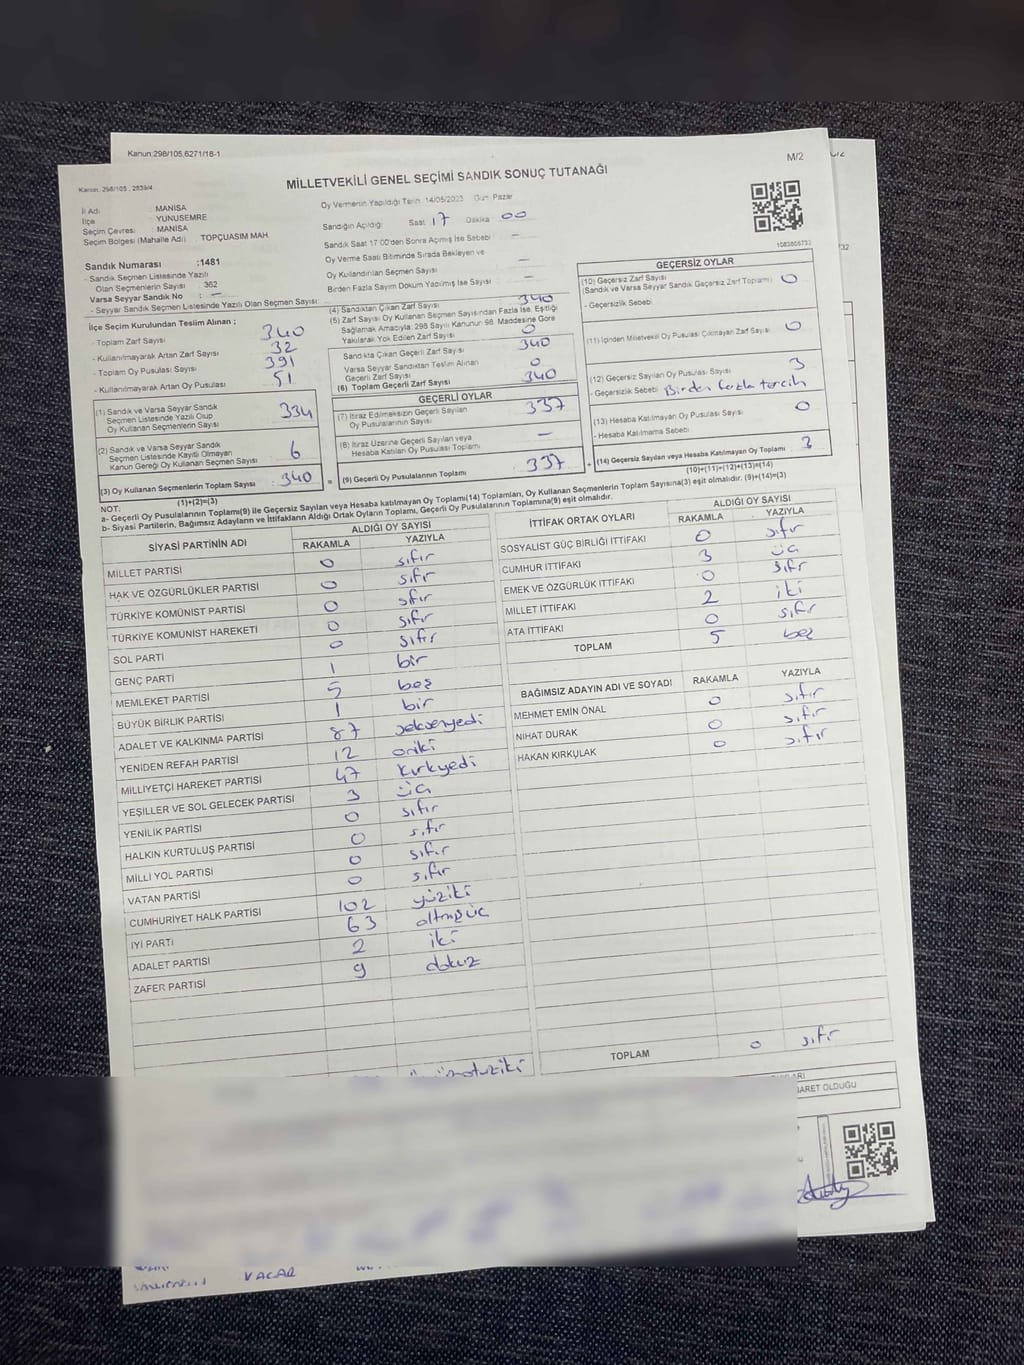 Kanun:298/105,6271/18-1
M/2
Kanun: 298/105 , 2839/4
MİLLETVEKİLİ GENEL SEÇİMİ SANDIK SONUÇ TUTANAĞI
İl Adı : MANİSA
İlçe YUNUSEMRE
Seçim Çevresi: MANİSA
Seçim Bölgesi (Mahalle Adı) : TOPÇUASIM MAH
Oy Vermenin Yapıldığı Tarih: 14/05/2023 Gün: Pazar
Sandığın Açıldığı: Saat 17 Dakika 00
Sandık Saat 17:00'den Sonra Açılmış İse Sebebi : -
Oy Verme Saati Bitiminde Sırada Bekleyen ve
Oy Kullandırılan Seçmen Sayısı -
Birden Fazla Sayım Döküm Yapılmış İse Sayısı : -
1083806733
Sandık Numarası :1481
- Sandık Seçmen Listesinde Yazılı
Olan Seçmenlerin Sayısı : 362
Varsa Seyyar Sandık No : -
- Seyyar Sandık Seçmen Listesinde Yazılı Olan Seçmen Sayısı:
İlçe Seçim Kurulundan Teslim Alınan ;
- Toplam Zarf Sayısı 340
- Kullanılmayarak Artan Zarf Sayısı 32
- Toplam Oy Pusulası Sayısı 391
- Kullanılmayarak Artan Oy Pusulası 51
(1) Sandık ve Varsa Seyyar Sandık
Seçmen Listesinde Yazılı Olup
Oy Kullanan Seçmenlerin Sayısı 334
(2) Sandık ve Varsa Seyyar Sandık
Seçmen Listesinde Kayıtlı Olmayan
Kanun Gereği Oy Kullanan Seçmen Sayısı 6
(3) Oy Kullanan Seçmenlerin Toplam Sayısı 340
(1)+(2)=(3)
(4) Sandıktan Çıkan Zarf Sayısı 340
(5) Zarf Sayısı Oy Kullanan Seçmen Sayısından Fazla İse, Eşitliği
Sağlamak Amacıyla: 298 Sayılı Kanunun 98. Maddesine Göre
Yakılarak Yok Edilen Zarf Sayısı 0
Sandıkta Çıkan Geçerli Zarf Sayısı 340
Varsa Seyyar Sandıktan Teslim Alınan
Geçerli Zarf Sayısı 0
(6) Toplam Geçerli Zarf Sayısı 340
GEÇERLİ OYLAR
(7) İtiraz Edilmeksizin Geçerli Sayılan
Oy Pusulalarının Sayısı 337
(8) İtiraz Üzerine Geçerli Sayılan veya
Hesaba Katılan Oy Pusulası Toplamı -
= (9) Geçerli Oy Pusulalarının Toplamı 337
GEÇERSİZ OYLAR
(10) Geçersiz Zarf Sayısı
(Sandık ve Varsa Seyyar Sandık Geçersiz Zarf Toplamı) 0
- Geçersizlik Sebebi:
(11) İçinden Milletvekili Oy Pusulası Çıkmayan Zarf Sayısı 0
(12) Geçersiz Sayılan Oy Pusulası Sayısı 3
- Geçersizlik Sebebi: Birden fazla tercih
(13) Hesaba Katılmayan Oy Pusulası Sayısı 0
- Hesaba Katılmama Sebebi:
+ (14) Geçersiz Sayılan veya Hesaba Katılmayan Oy Toplamı 3
(10)+(11)+(12)+(13)=(14)
NOT:
a- Geçerli Oy Pusulalarının Toplamı(9) ile Geçersiz Sayılan veya Hesaba katılmayan Oy Toplamı(14) Toplamları, Oy Kullanan Seçmenlerin Toplam Sayısına(3) eşit olmalıdır. (9)+(14)=(3)
b- Siyasi Partilerin, Bağımsız Adayların ve İttifakların Aldığı Ortak Oyların Toplamı, Geçerli Oy Pusulalarının Toplamına(9) eşit olmalıdır.
SİYASİ PARTİNİN ADI ALDIĞI OY SAYISI
RAKAMLA YAZIYLA
MİLLET PARTİSİ 0 sıfır
HAK VE ÖZGÜRLÜKLER PARTİSİ 0 sıfır
TÜRKİYE KOMÜNİST PARTİSİ 0 sıfır
TÜRKİYE KOMÜNİST HAREKETİ 0 sıfır
SOL PARTİ 0 sıfır
GENÇ PARTİ 1 bir
MEMLEKET PARTİSİ 5 beş
BÜYÜK BİRLİK PARTİSİ 1 bir
ADALET VE KALKINMA PARTİSİ 87 seksenyedi
YENİDEN REFAH PARTİSİ 12 oniki
MİLLİYETÇİ HAREKET PARTİSİ 47 kırkyedi
YEŞİLLER VE SOL GELECEK PARTİSİ 3 üç
YENİLİK PARTİSİ 0 sıfır
HALKIN KURTULUŞ PARTİSİ 0 sıfır
MİLLİ YOL PARTİSİ 0 sıfır
VATAN PARTİSİ 0 sıfır
CUMHURİYET HALK PARTİSİ 102 yüziki
İYİ PARTİ 63 altmışüç
ADALET PARTİSİ 2 iki
ZAFER PARTİSİ 9 dokuz
İTTİFAK ORTAK OYLARI ALDIĞI OY SAYISI
RAKAMLA YAZIYLA
SOSYALİST GÜÇ BİRLİĞİ İTTİFAKI 0 sıfır
CUMHUR İTTİFAKI 3 üç
EMEK VE ÖZGÜRLÜK İTTİFAKI 0 sıfır
MİLLET İTTİFAKI 2 iki
ATA İTTİFAKI 0 sıfır
TOPLAM 5 beş
BAĞIMSIZ ADAYIN ADI VE SOYADI RAKAMLA YAZIYLA
MEHMET EMİN ÖNAL 0 sıfır
NİHAT DURAK 0 sıfır
HAKAN KIRKULAK 0 sıfır
TOPLAM 0 sıfır